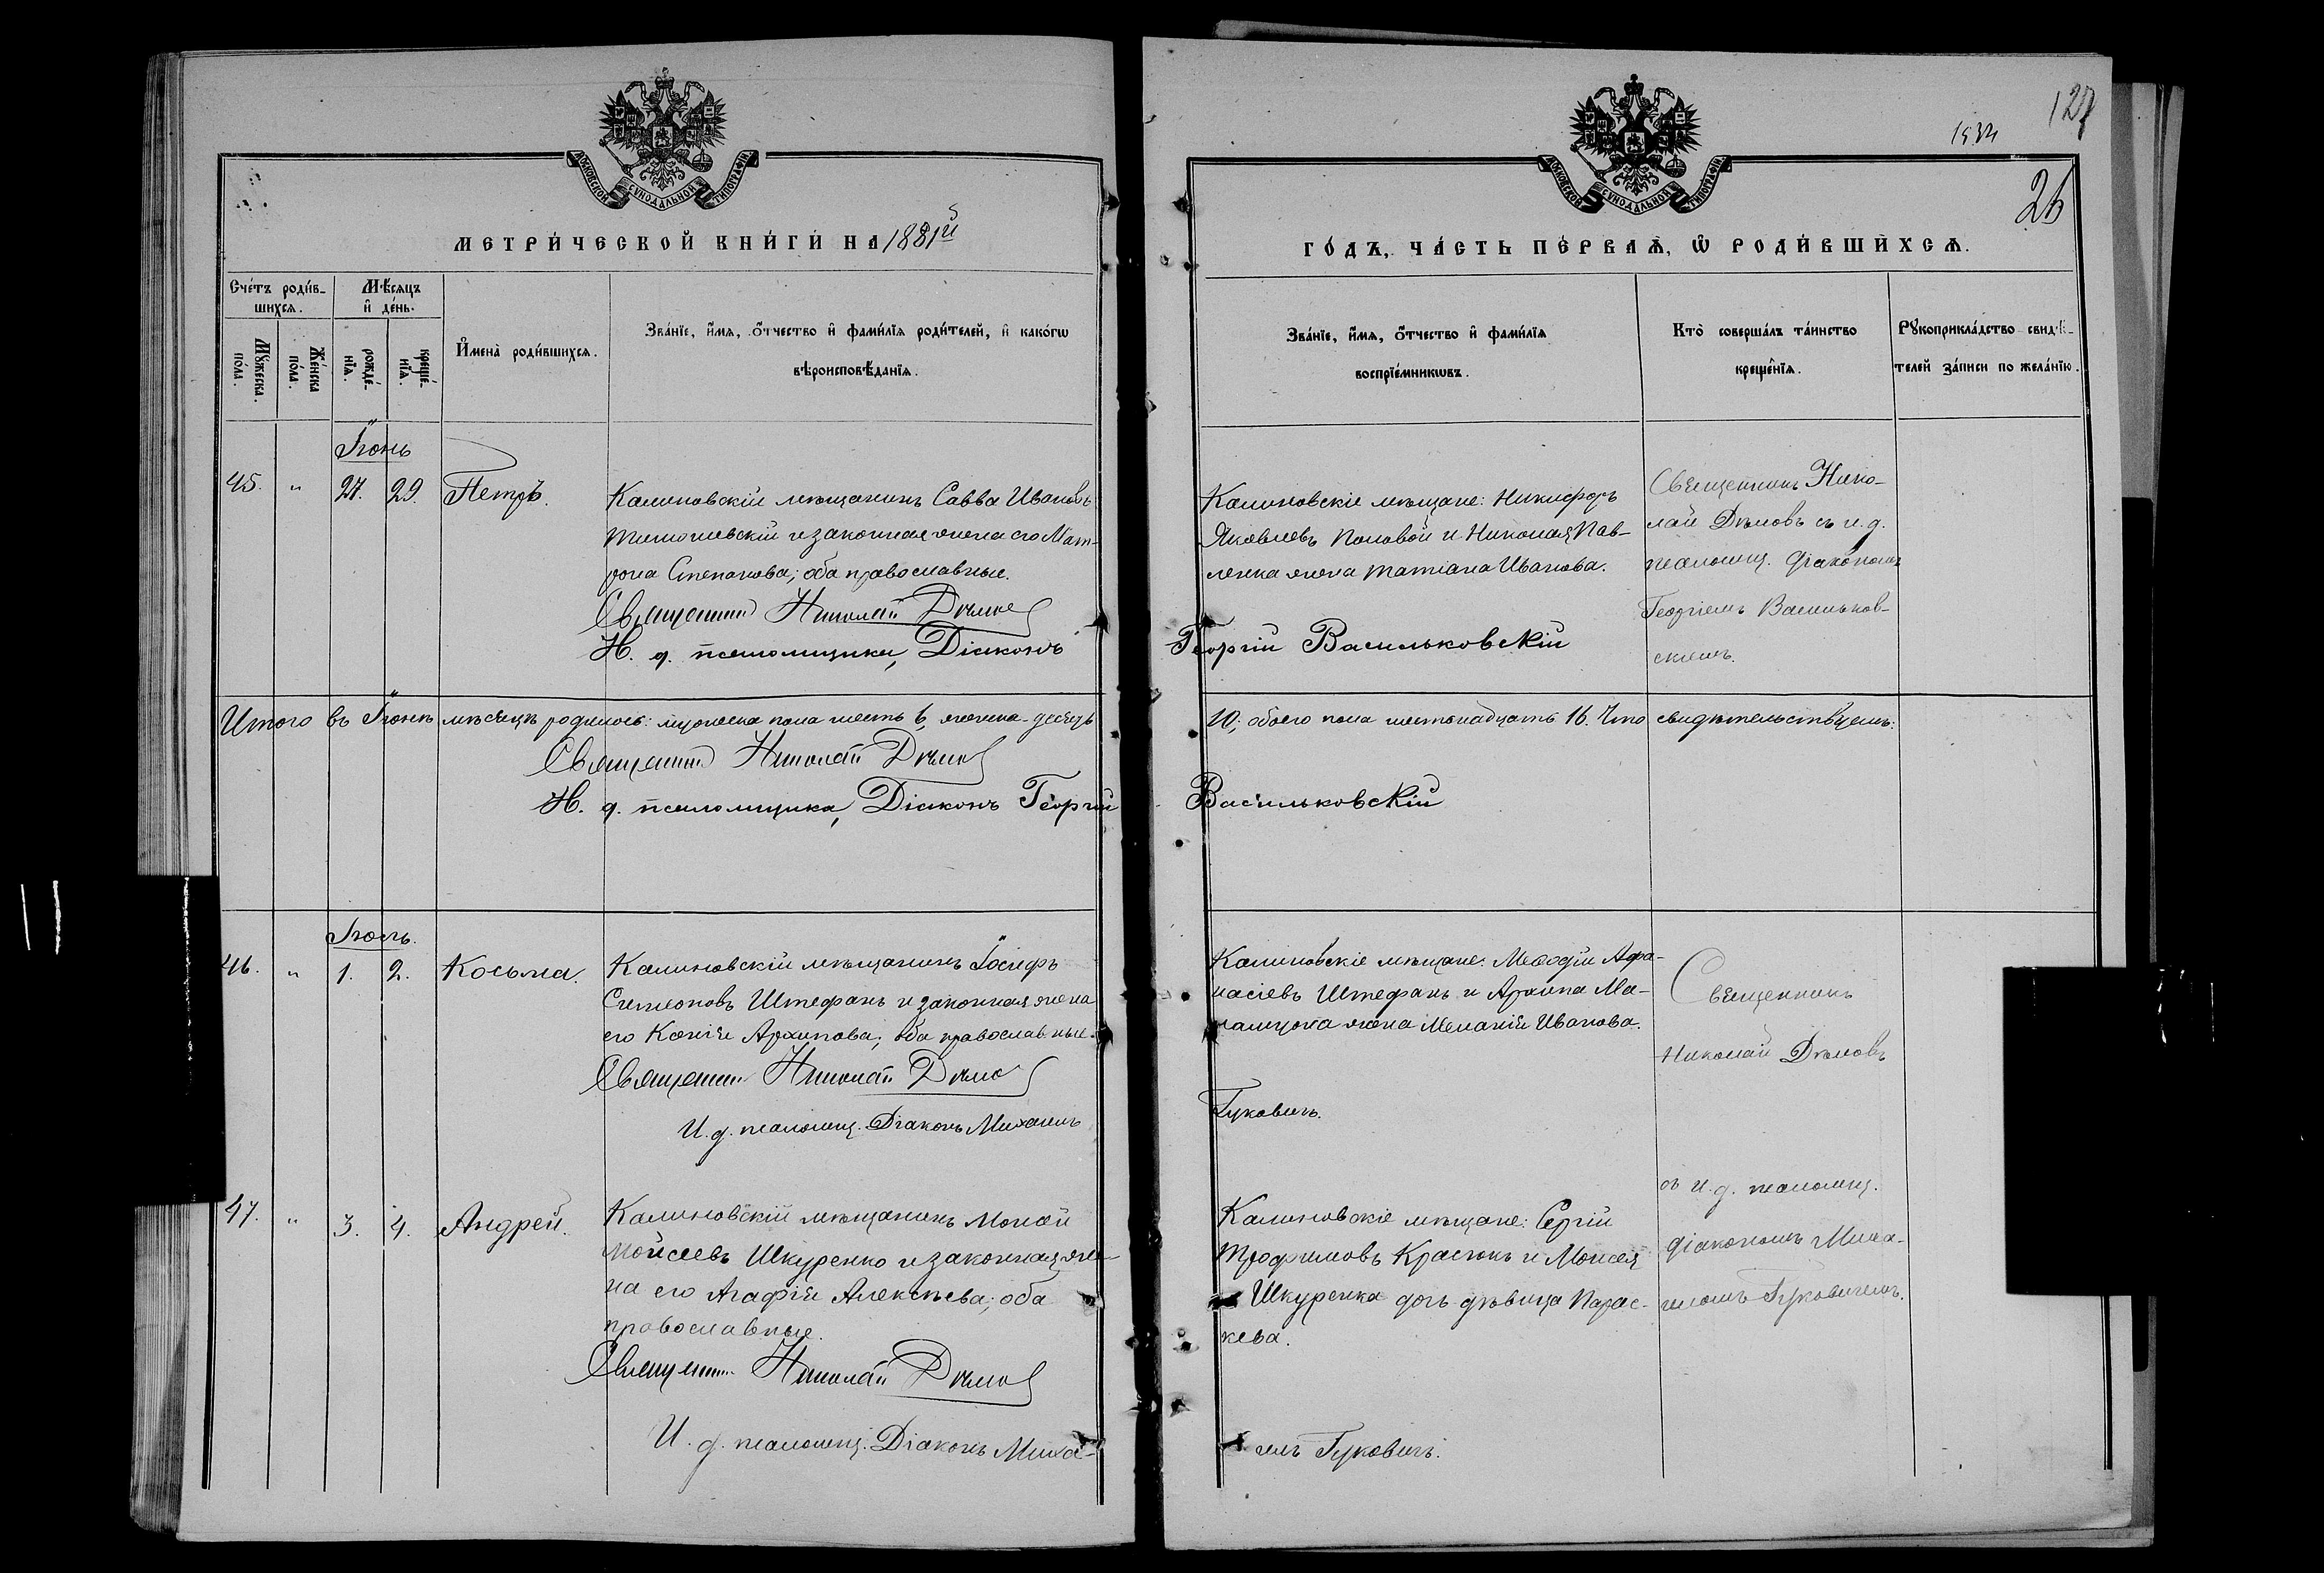 127
1534
26
МОСКОВСКОЙ СѴНОДАЛЬНОЙ ТИПОГРАФІИ
МОСКОВСКОЙ СѴНОДАЛЬНОЙ ТИПОГРАФІИ
МЕТРИ́ЧЕСКОЙ КНИ́ГИ НА 1881й
ГО́ДЪ, ЧА́СТЬ ПЕ́РВАѦ, Ѡ҆ РОДИ́ВШИХСѦ.
Сче́тъ роди́в-
шихсѧ.
Мꙋ́жеска по́ла.
Же́нска по́ла.
Мѣ́сѧцъ
и҆ де́нь.
рожде́-нїѧ.
креще́-нїѧ.
И҆мена̀ роди́вшихсѧ.
Зва́нїе, и҆́мѧ, ѻ҆́тчество и҆ фами́лїѧ роди́телей, и҆ како́гѡ
вѣроисповѣ́данїѧ.
Зва́нїе, и҆́мѧ, ѻ҆́тчество и҆ фами́лїѧ
воспрїе́мникѡвъ.
Кто̀ соверша́лъ та́инство
креще́нїѧ.
Рꙋкоприкла́дство свидѣ́-
телей за́писи по жела́нїю.
Іюнь
45. „ 27. 29. Петръ.
Калиновскій мѣщанинъ Савва Ивановъ
Тимошевскій и законная жена его Мат-
рона Степанова; оба православные.
Священникъ Николай Дѣмовъ
И. д. псаломщика, Діаконъ
Калиновскіе мѣщане: Никифоръ
Яковлевъ Половой и Николая Пав-
ленка жена Татіана Иванова.
Георгій Васильковскій
Священникъ Нико-
лай Дѣмовъ съ и. д.
псаломщ. діакономъ
Георгіемъ Васильков-
скимъ.
Итого въ Іюнѣ мѣсяцѣ родилось: мужеска пола шесть 6, женска-десять
10; обоего пола шестьнадцать 16. Что свидѣтельствуемъ:
Священникъ Николай Дѣмовъ
И. д. псаломщика, Діаконъ Георгій
Васильковскій
Іюль.
46. „ 1. 2. Косьма.
Калиновскій мѣщанинъ Іосифъ
Симеоновъ Штефанъ и законная жена
его Ксенія Архипова; оба православные.
Священникъ Николай Дѣмовъ
И. д. псаломщ. Діаконъ Михаилъ
Калиновскіе мѣщане: Меѳодій Афа-
насіевъ Штефанъ и Архипа Ма-
жена Меланія Иванова.
Гуковичъ.
Священникъ
Николай Дѣмовъ
съ и. д. псаломщ.
діакономъ Миха-
иломъ Гуковичемъ.
47. „ 3. 4. Андрей.
Калиновскій мѣщанинъ Моисей
Мойсеевъ Шкуренко и законная же-
на его Агафія Алексѣева; оба
православные.
Священникъ Николай Дѣмовъ
И. д. псаломщ. Діаконъ Миха-
Калиновскіе мѣщане: Сергій
Трофимовъ Красюкъ и Моисея
Шкуренка дочь дѣвица Парас-
кева.
илъ Гуковичъ.